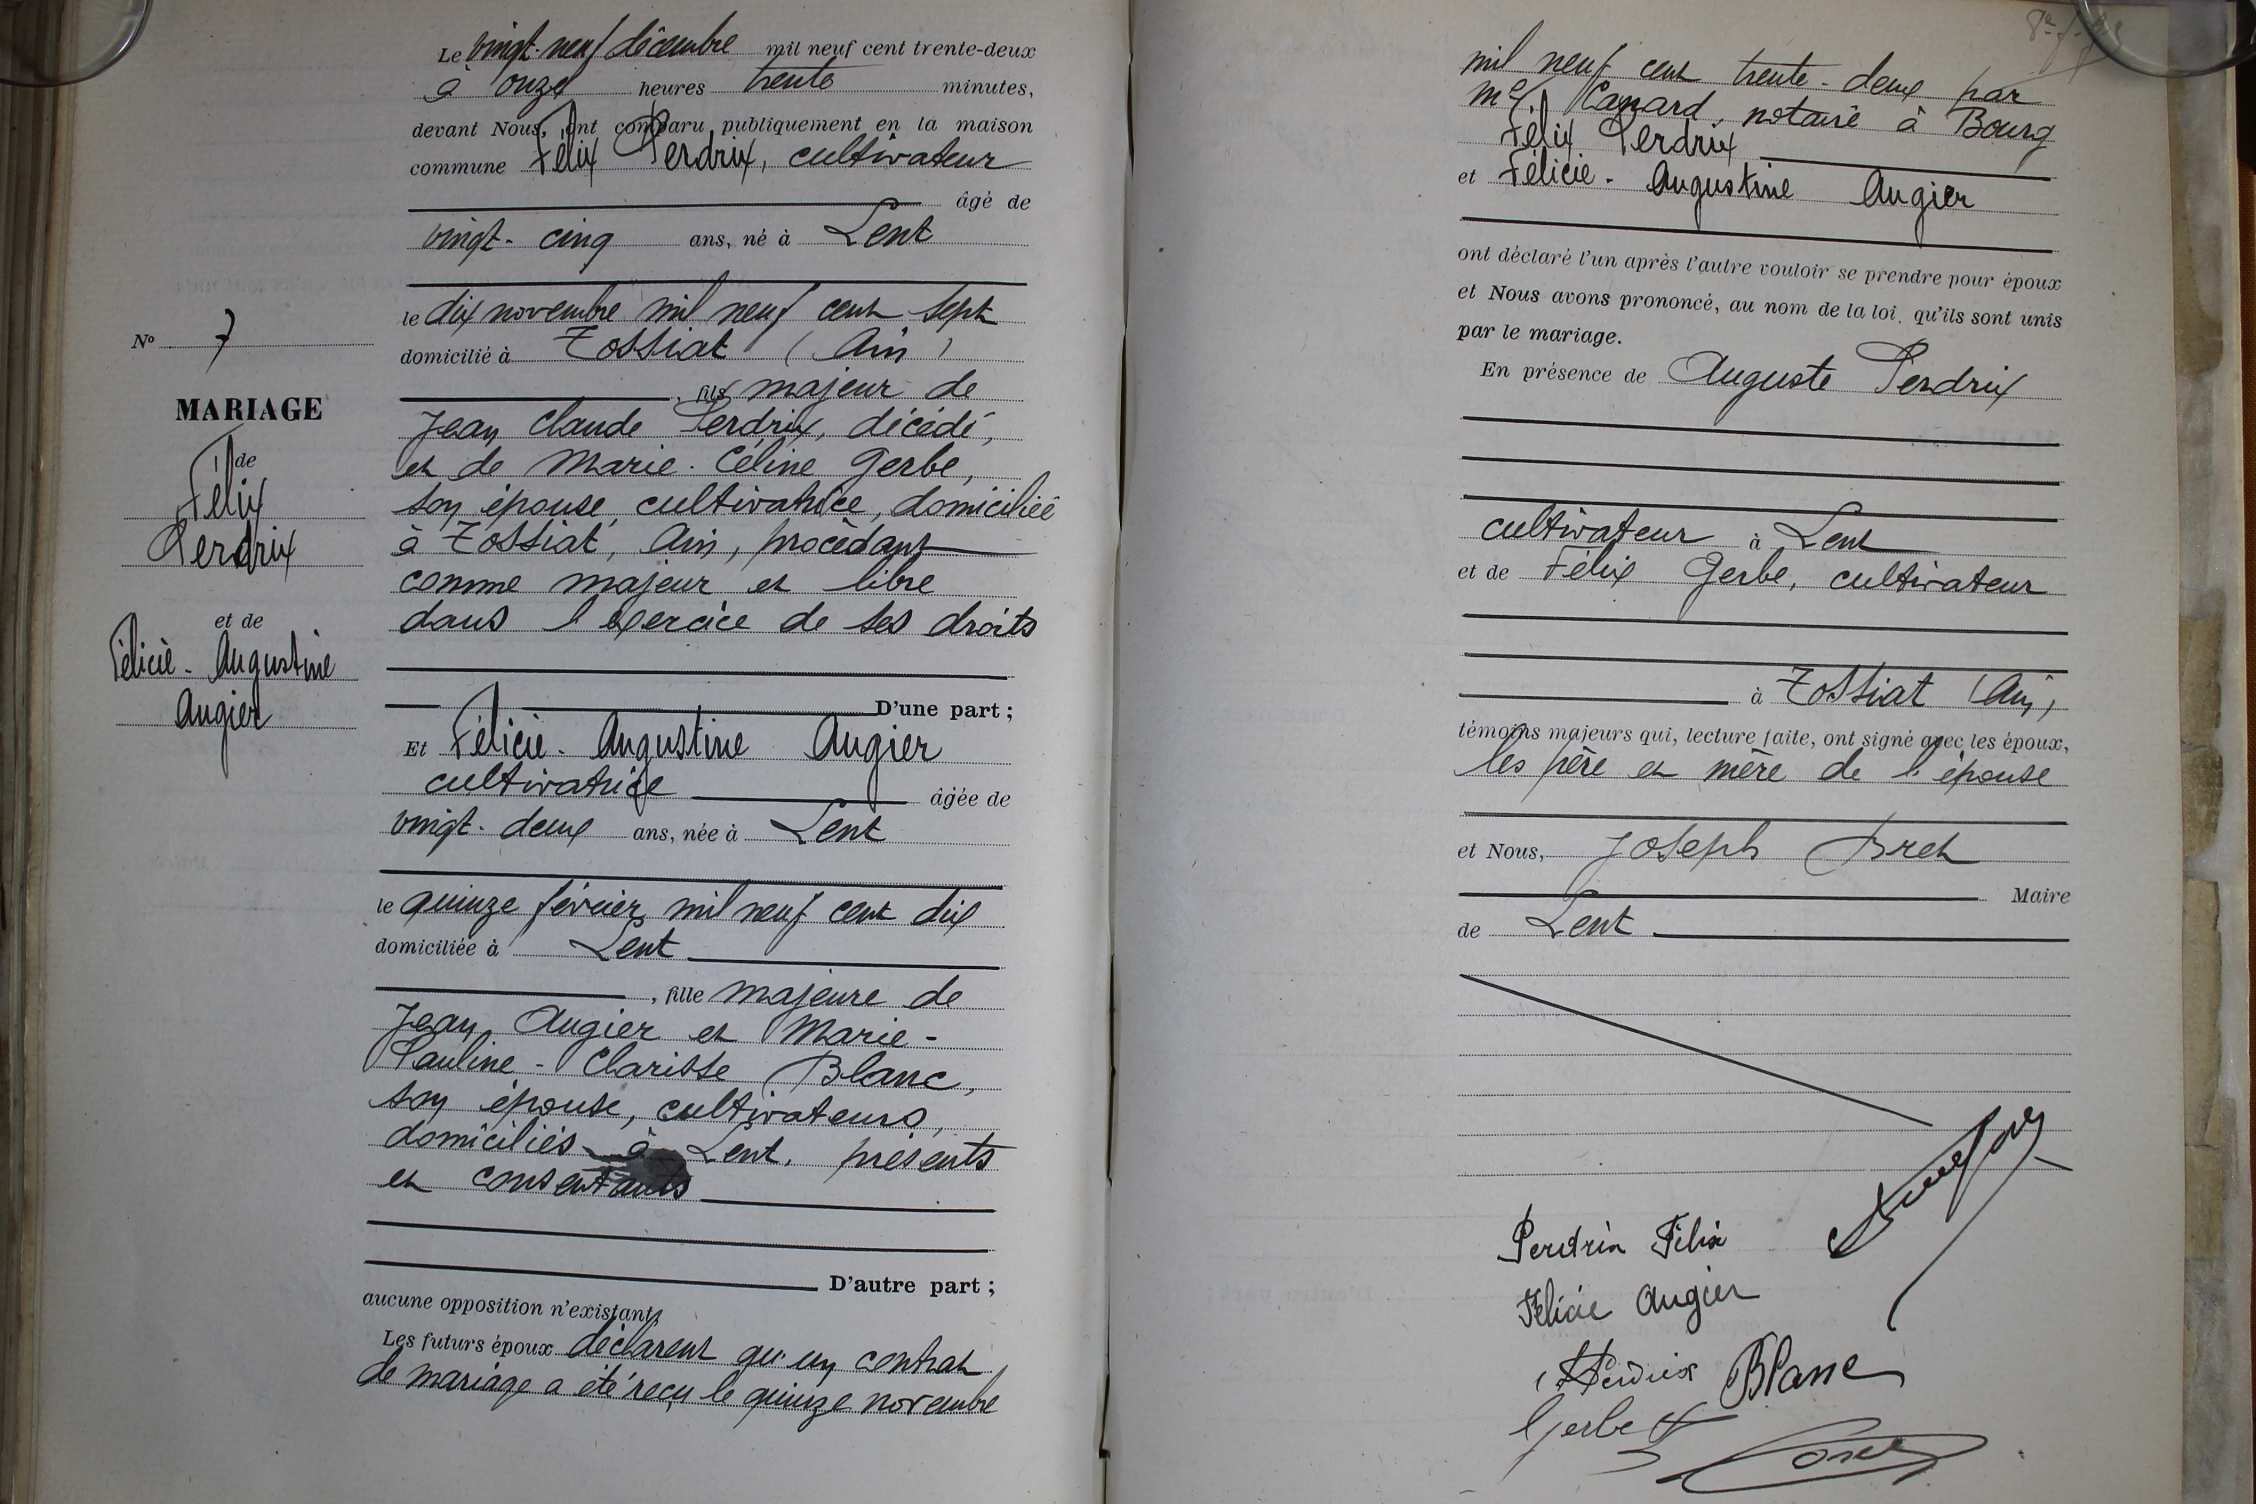 Le vingt-neuf décembre mil neuf cent trente-deux
à onze heures trente minutes,
devant Nous, ont comparu publiquement en la maison
commune Félix Perdrix, cultivateur
âgé de
vingt-cinq ans, né à Lent
le dix novembre mil neuf cent sept
domicilié à Tossiat (Ain)
, fils majeur de
Jean Claude Perdrix, décédé,
et de Marie-Céline Gerbe,
son épouse, cultivatrice, domiciliée
à Tossiat, Ain, procèdant
comme majeur et libre
dans l'exercice de ses droits
D'une part ;
Et Félicie-Augustine Augier
cultivatrice âgée de
vingt-deux ans, née à Lent
le quinze février mil neuf cent dix
domiciliée à Lent
, fille majeure de
Jean Augier et Marie-
Pauline-Clarisse Blanc,
son épouse, cultivateurs,
domiciliés à Lent, présents
et consentants
D'autre part ;
aucune opposition n'existant,
Les futurs époux déclarent qu'un contrat
de mariage a été reçu le quinze novembre
No 7
MARIAGE
de
Félix
Perdrix
et de
Félicie-Augustine
Augier
mil neuf cent trente-deux par
Me Canard, notaire à Bourg
Félix Perdrix
et Félicie-Augustine Augier
ont déclaré l'un après l'autre vouloir se prendre pour époux
et Nous avons prononcé, au nom de la loi, qu'ils sont unis
par le mariage.
En présence de Auguste Perdrix
cultivateur à Lent
et de Félix Gerbe, cultivateur
à Tossiat (Ain)
témoins majeurs qui, lecture faite, ont signé avec les époux,
les père et mère de l'épouse
et Nous, Joseph Bret
Maire
de Lent
Perdrix Félix
Félicie Augier
Perdrix Blanc
Gerbe F